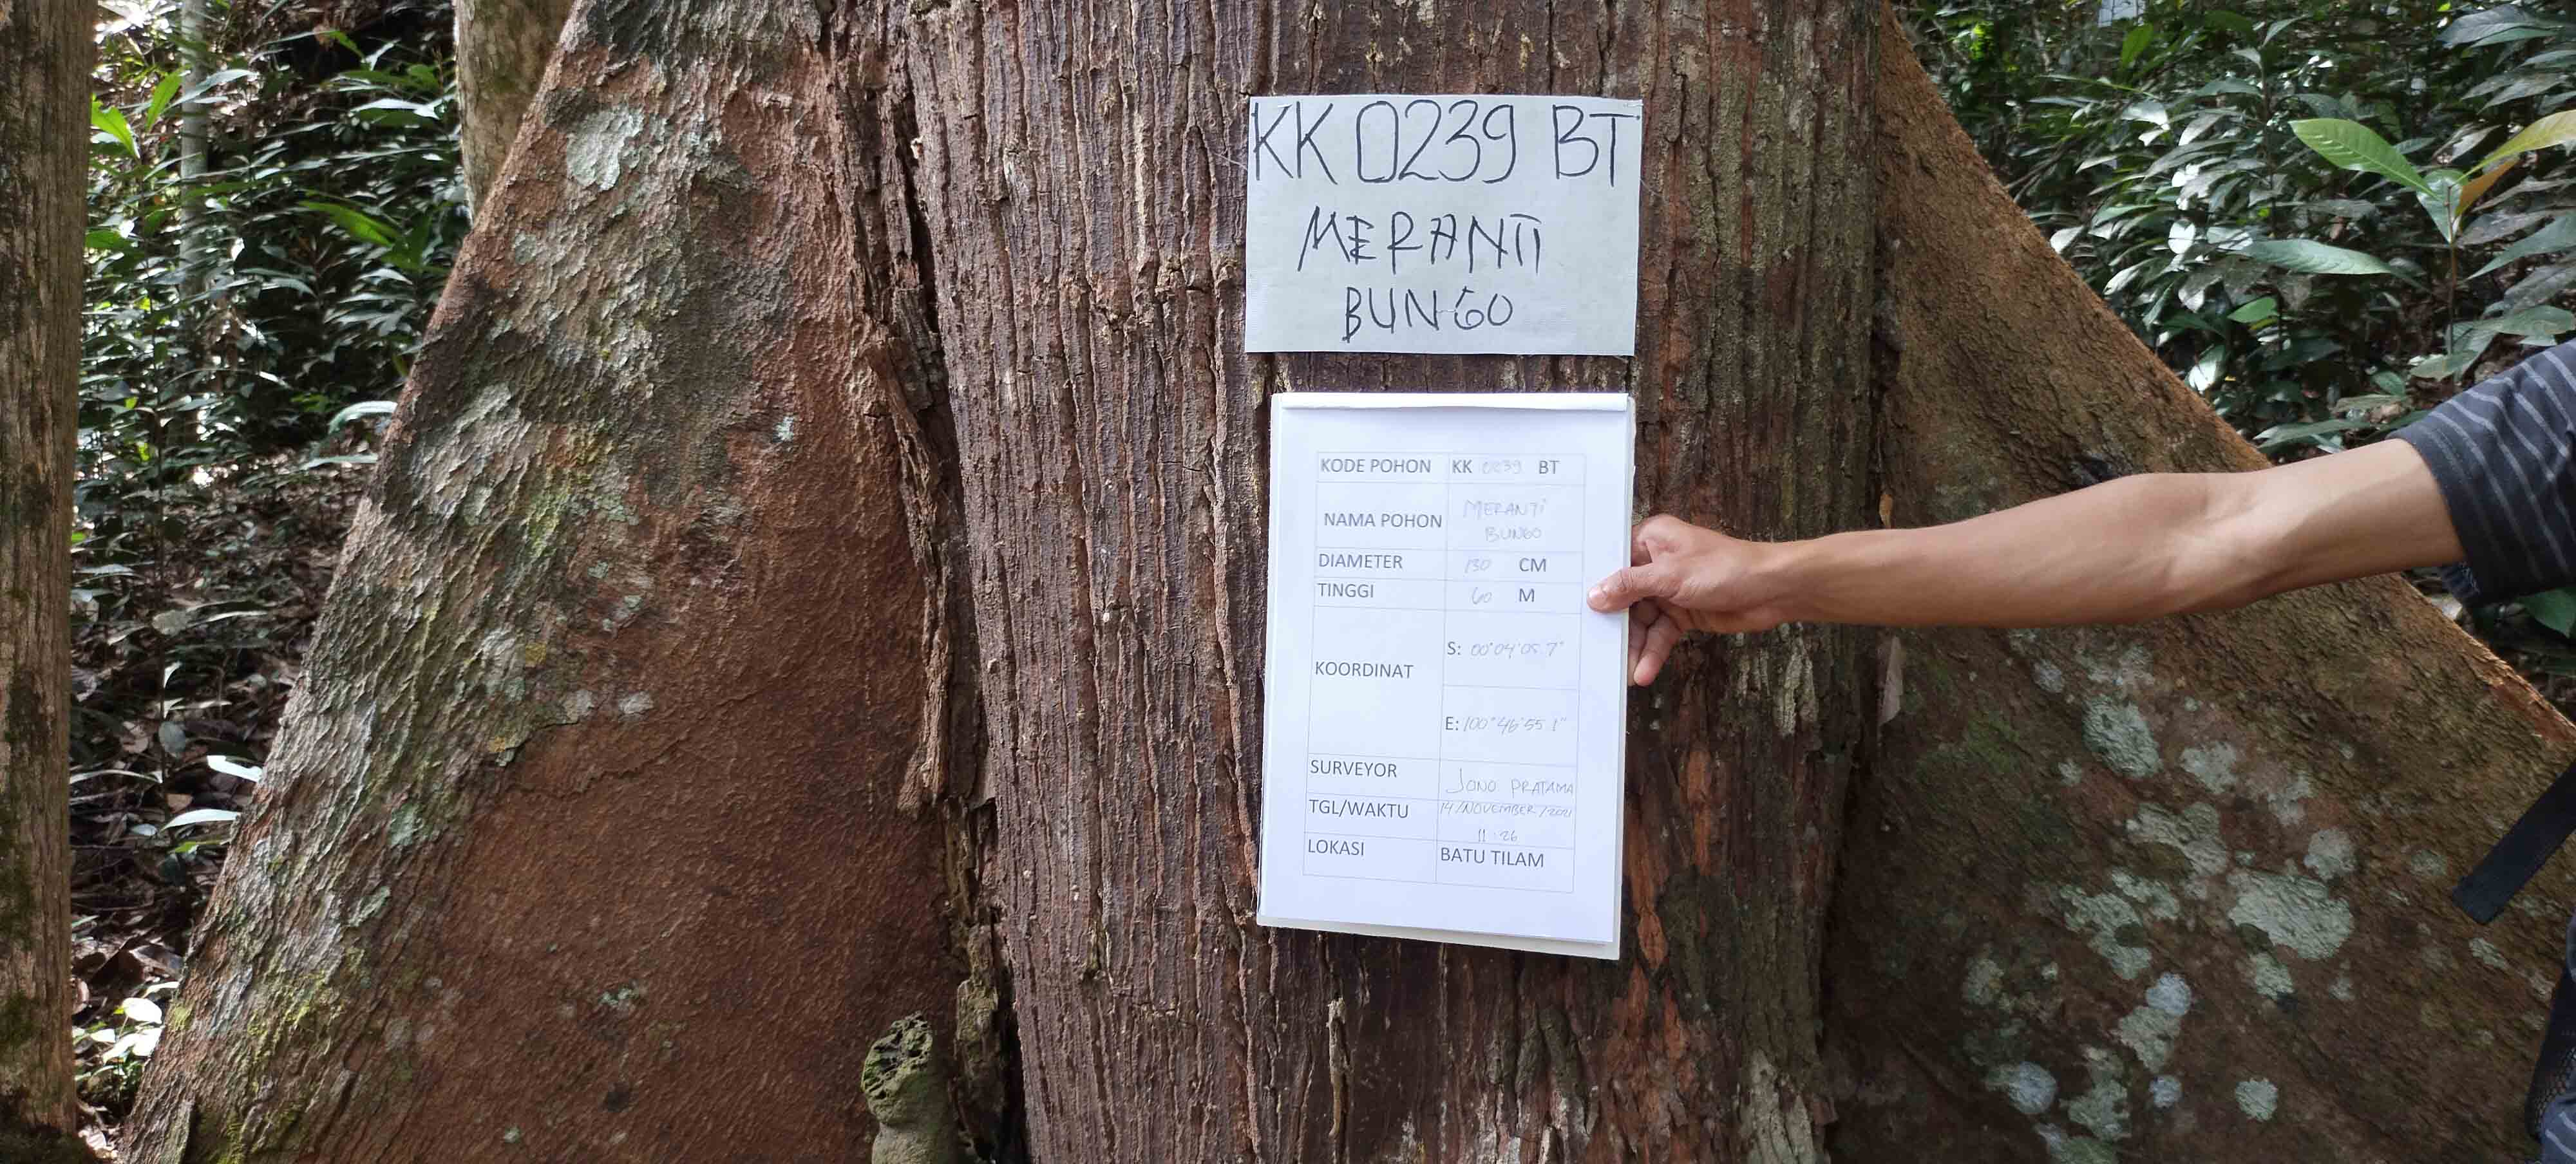 KK 0239 BT
MERANTI
BUNGO
KODE POHON KK 0239 BT
NAMA POHON MERANTI
BUNGO
DIAMETER 130 CM
TINGGI 60 M
KOORDINAT
S: 00°04'05.7"
E: 100°46'55.1"
SURVEYOR JONO PRATAMA
TGL/WAKTU 14/NOVEMBER/2021
11:26
LOKASI BATU TILAM